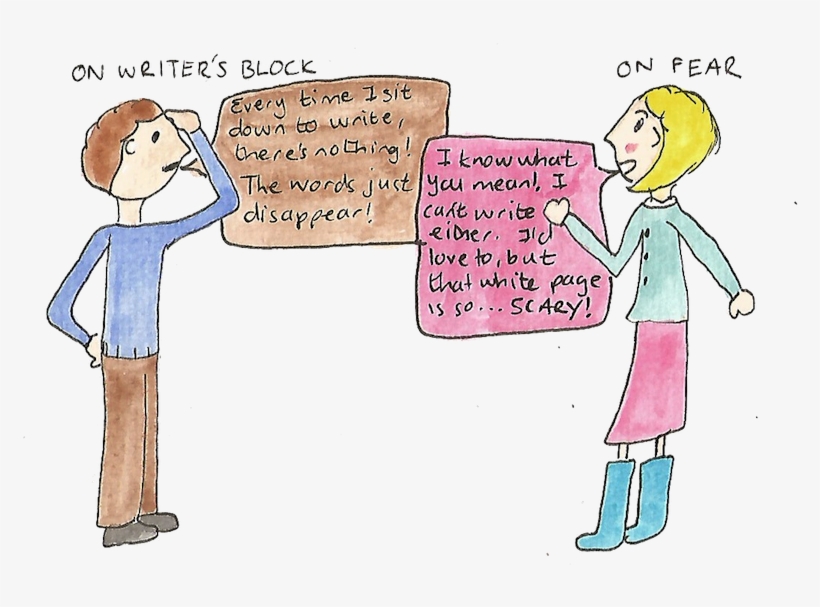 ON WRITER'S BLOCK
Every time I sit
down to write,
there's nothing!
The words just
disappear!
ON FEAR
I know what
you mean!, I
can't write
either. I'd
love to, but
that white page
is so... SCARY!